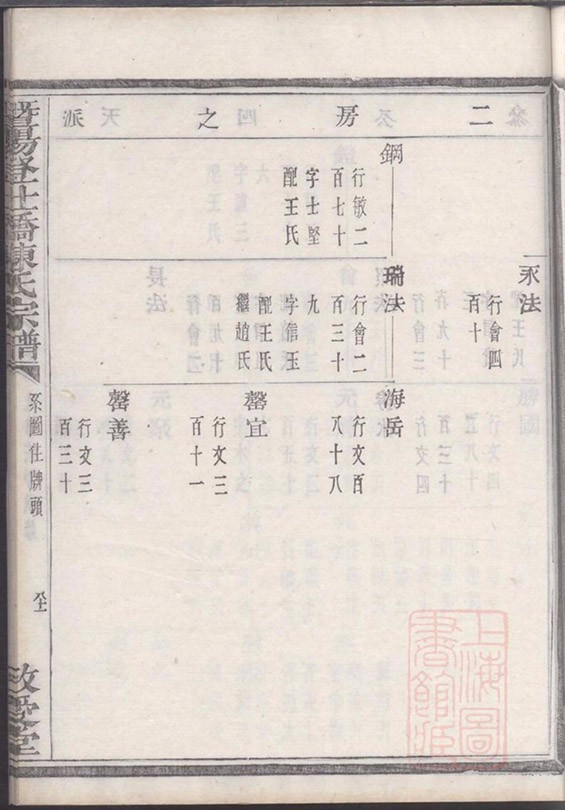 二房之派
永法
行會四
百十
鋼
行敏二
百七十
字士堅
配王氏
瑞法
行會二
百三十
九
字信玉
配王氏
繼趙氏
海岳
行文百
八十八
馨宜
行文三
百十一
馨善
行文三
百三十
暨陽登仕橋陳氏宗譜
系圖往牌頭
敬愛堂
上海圖
書館藏